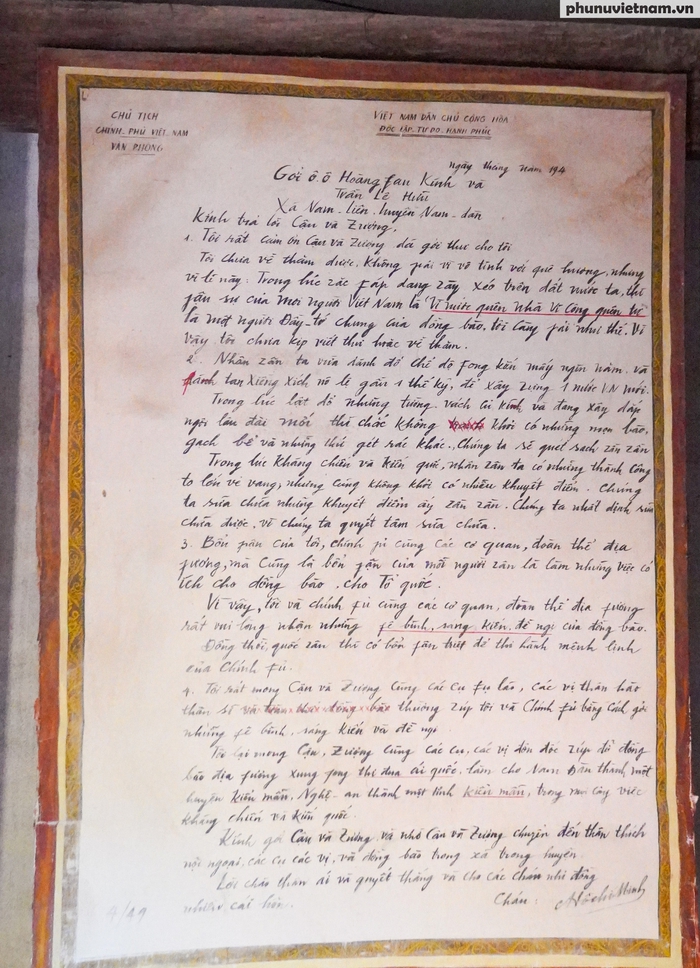 phunuvietnam.vn
CHỦ TỊCH
CHÍNH-PHỦ VIỆT NAM
VĂN PHÒNG
VIỆT NAM DÂN CHỦ CỘNG HÒA
ĐỘC LẬP. TỰ DO. HẠNH PHÚC
ngày tháng năm 194
Gởi ô.ô Hoàng Fan Kính và
Trần Lê Hữu
Xã Nam-Liên, huyện Nam-đàn
Kính trả lời Cậu và Zượng,
1. Tôi rất cảm ơn Cậu và Zượng đã gởi thư cho tôi
Tôi chưa về thăm được. Không fải vì vô tình với quê hương, nhưng
vì lẽ này: Trong lúc zặc Fáp đang zày xéo trên đất nước ta, thì
fận sự của mỗi người Việt Nam là "Vì nước quên nhà Vì Công quên
là một người Đầy-tớ chung của đồng bào, tôi Càng fải như thế. Vì
vậy tôi chưa kịp viết thư hoặc về thăm.
2. Nhân zân ta vừa đánh đổ Chế độ fong kiến mấy ngìn năm và
đánh tan Xiềng Xích nô lệ gần 1 thế kỷ, để xây zựng 1 nước V.N mới.
Trong lúc lật đổ những tường vách Cũ kĩnh và đang xây đắp
ngôi lâu đài mới thì chắc không khỏi có những mẹn bào,
gạch bể và những thứ gét rác khác. Chúng ta sẽ quét sạch zần zần
Trong lúc kháng chiến và kiến quốc, nhân zân ta có những thành công
to lớn vẻ vang, nhưng cũng không khỏi có nhiều khuyết điểm. Chúng
ta sửa chữa những khuyết điểm ấy zần zần. Chúng ta nhất định sửa
chữa được, vì chúng ta quyết tâm sửa chữa.
3. Bổn fận của tôi, chính fủ cùng các cơ quan, đoàn thể địa
fương, mà cũng là bổn fận của mỗi người zân là làm những việc có
ích cho đồng bào, cho Tổ quốc.
Vì vậy, tôi và chính fủ cùng các cơ quan, đoàn thể địa fương
rất vui lòng nhận những fê bình, sáng kiến, đề ngị của đồng bào.
Đồng thời, quốc zân thì có bổn fận triệt để thi hành mệnh lịnh
của Chính fủ.
4. Tôi rất mong Cậu và Zượng Cùng các Cụ fụ lão, các vị thân hào
thân sĩ và thường zúp tôi và Chính fủ bằng cách gởi
những fê bình, sáng kiến và đề ngị.
Tôi lại mong Cậu, Zượng Cùng các Cụ, các vị đôn đốc zúp đỡ đồng
bào địa fương xung fong thi đua ái quốc, làm cho Nam Đàn thành một
huyện kiểu mẫu, Nghệ-an thành một tỉnh kiểu mẫu, trong mọi công việc
kháng chiến và kiến quốc.
Kính gởi Cậu và Zượng và nhờ Cậu và Zượng chuyển đến thân thích
nội ngoại, các cụ các vị, và đồng bào trong xã trong huyện
Lời chào thân ái và quyết thắng và cho các cháu nhi đồng
nhiều cái hôn.
Cháu: Hồ Chí Minh
9/49